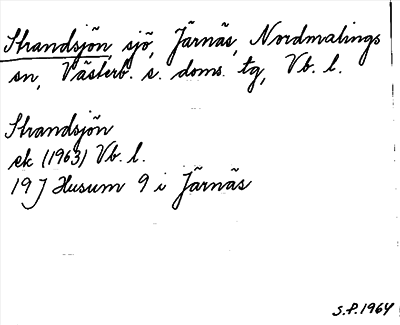 Strandsjön, sjö, Järnäs, Nordmalings
sn, Västerb. s. doms. tg, Vb. l.
Strandsjön
ek (1963) Vb. l.
19 J Husum 9 i Järnäs
S.P. 1964